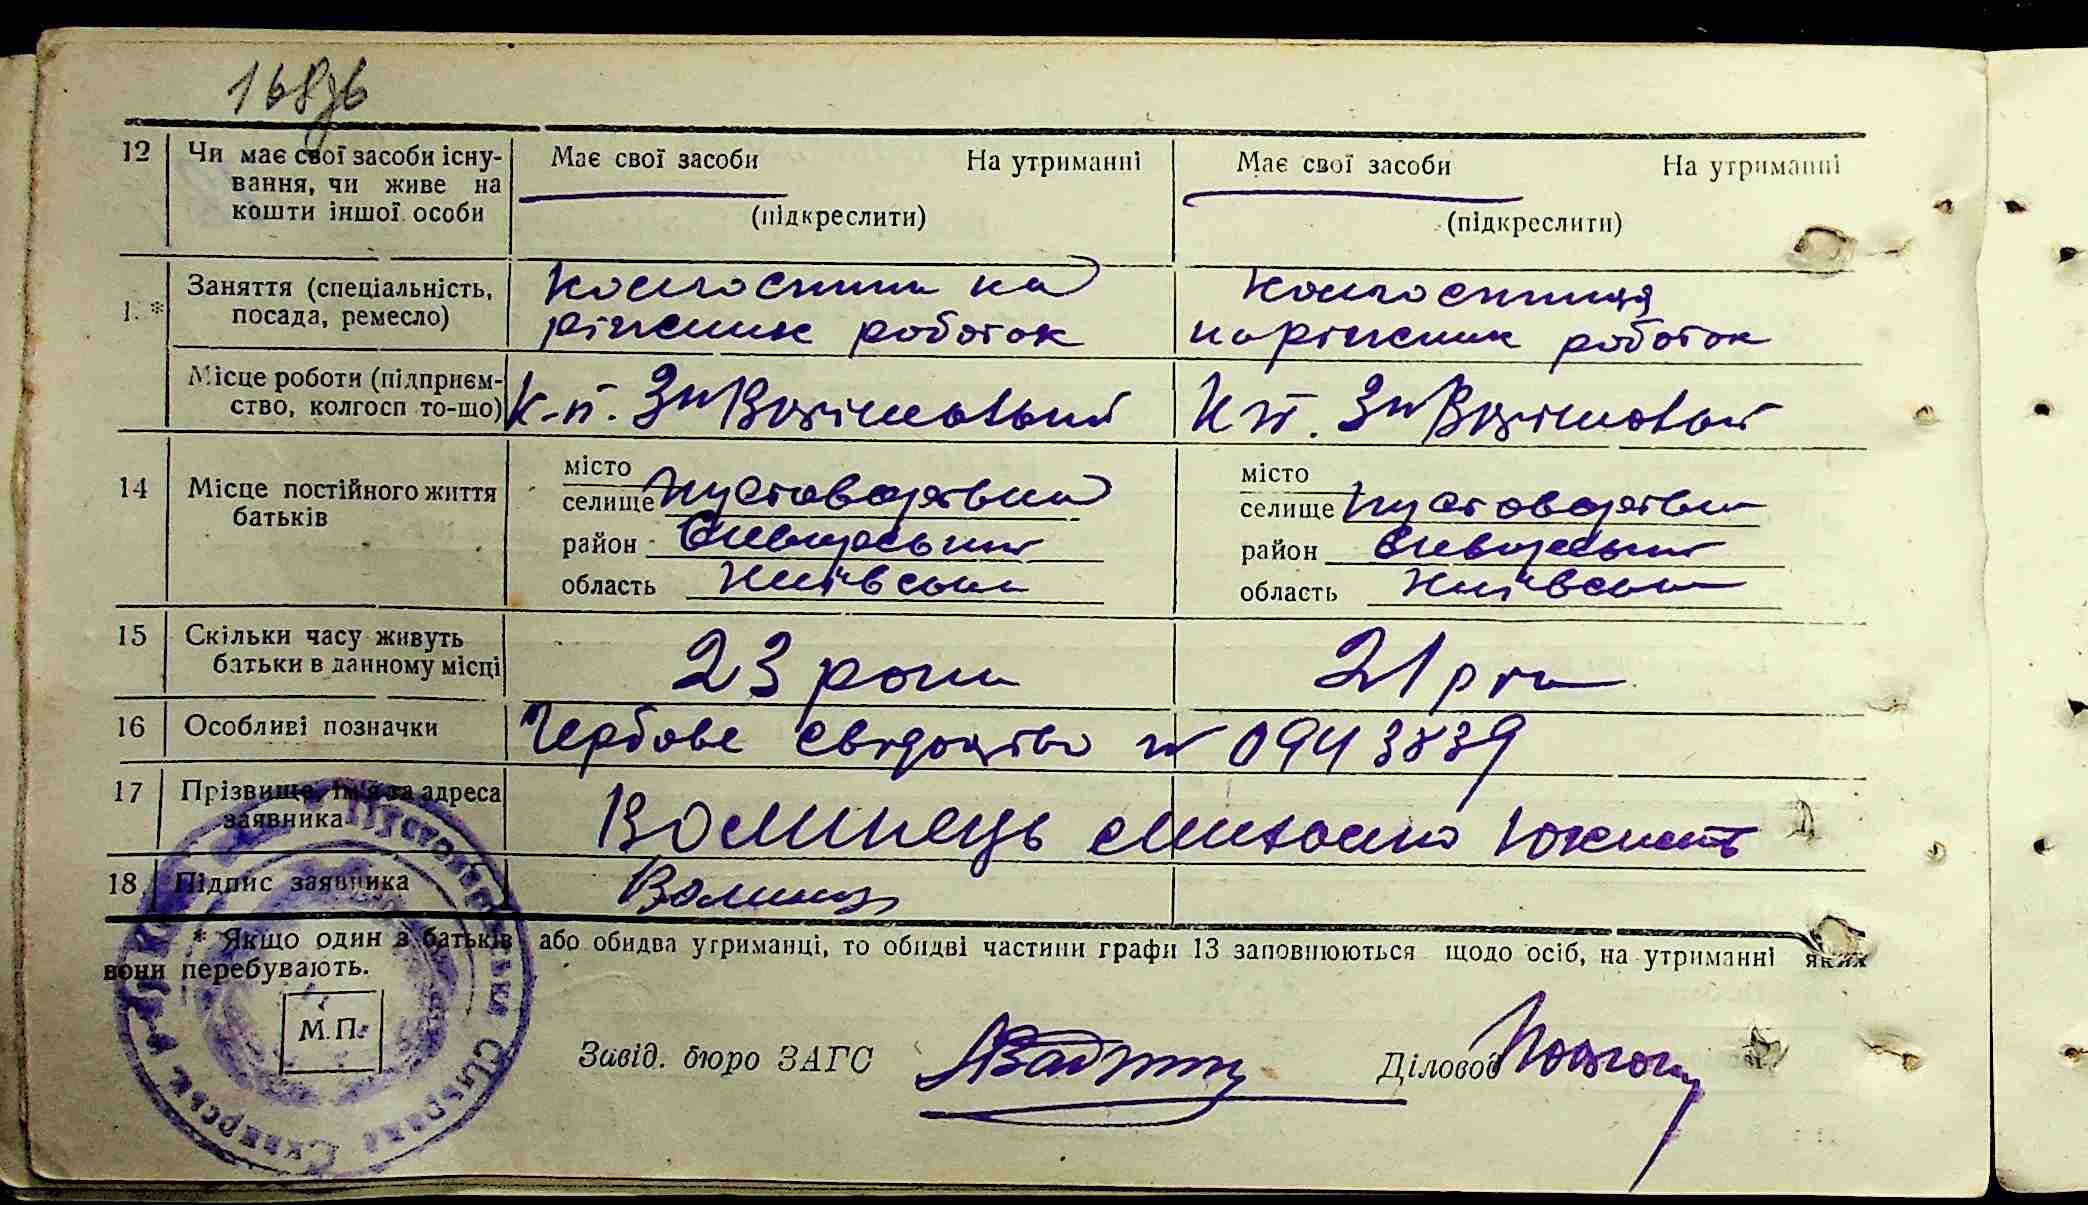 168зв
12 Чи має свої засоби існу- Має свої засоби На утриманні Має свої засоби На утриманні
вання, чи живе на
кошти іншої особи (підкреслити) (підкреслити)
1. * Заняття (спеціальність, колгоспник на колгоспниця
посада, ремесло) ріжених роботах на ріжених роботах
Місце роботи (підприєм-
ство, колгосп то-що) К-п.
14 Місце постійного життя
батьків
місто місто
селище Пустоварівка селище Пустоварівка
район Сквирський район Сквирський
область Київська область Київська
15 Скільки часу живуть
батьки в данному місці 23 роки 21 рік
16 Особливі позначки Гербове свідоцтво № 0943839
17 Прізвище, ім'я та адреса
заявника Волинець Михайло
18 Підпис заявника Волинець
* Якщо один з батьків або обидва утриманці, то обидві частини графи 13 заповнюються щодо осіб, на утриманні яких
вони перебувають.
М.П.
Завід. бюро ЗАГС Діловод
Сільрада Сквирськ.